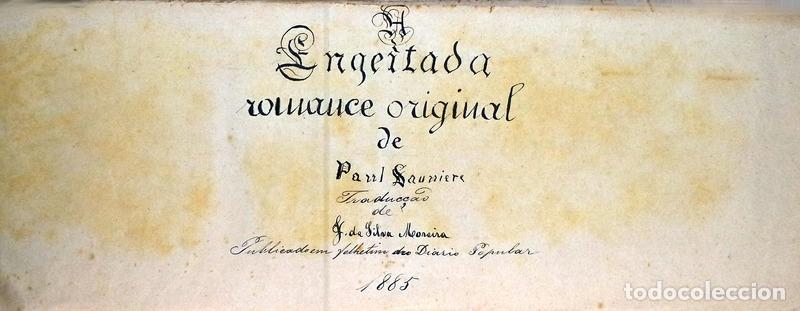 A
Engeitada
romance original
de
Paul Sauniere
Traducção
de
J. da Silva Moreira
Publicado em folhetim do Diario Popular
1885
todocoleccion